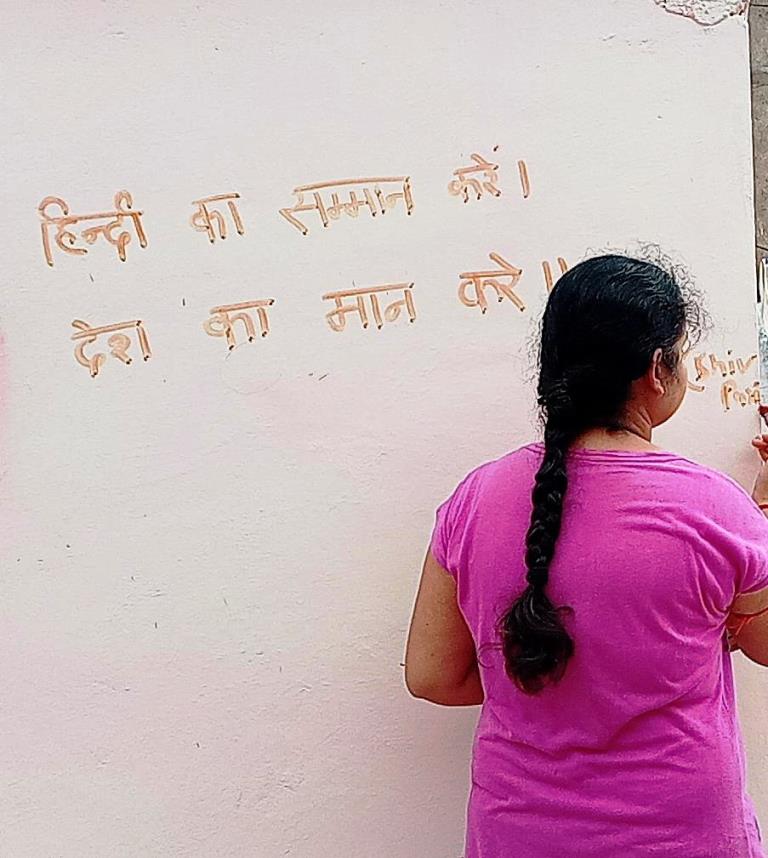 हिन्दी का सम्मान करें।
देश का मान करे॥
(Shiv